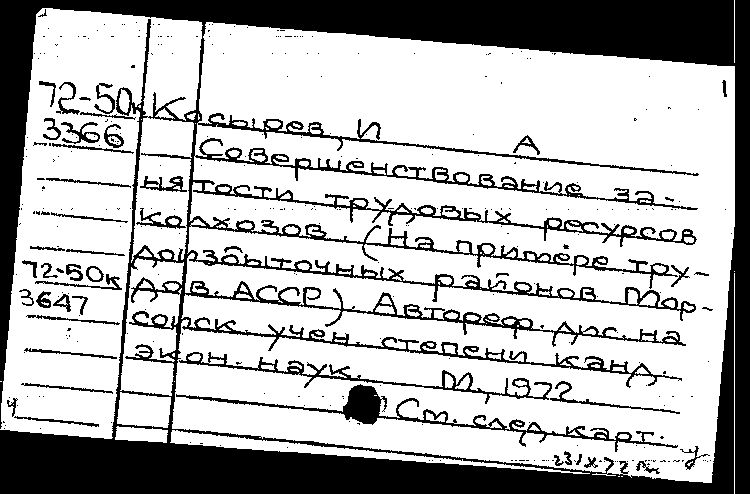 1
72-50к Косырев, И А
3366 Совершенствование за-
нятости трудовых ресурсов
колхозов. (На примере тру-
доизбыточных районов Мор-
72-50к дов. АССР). Автореф. дис. на
3647 соиск. учен. степени канд.
экон. наук. М., 1972.
См. след. карт.
ч у
23 IX-72